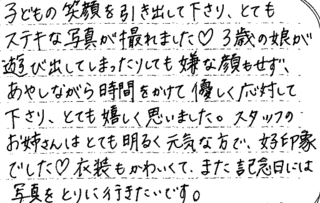 子どもの笑顔を引き出して下さり、とても
ステキな写真が撮れました♡ 3歳の娘が
遊び出してしまったりしても嫌な顔もせず、
あやしながら時間をかけて優しく応対して
下さり、とても嬉しく思いました。スタッフの
お姉さんはとても明るく元気な方で、好印象
でした♡ 衣装もかわいくて、また記念日には
写真をとりに行きたいです。